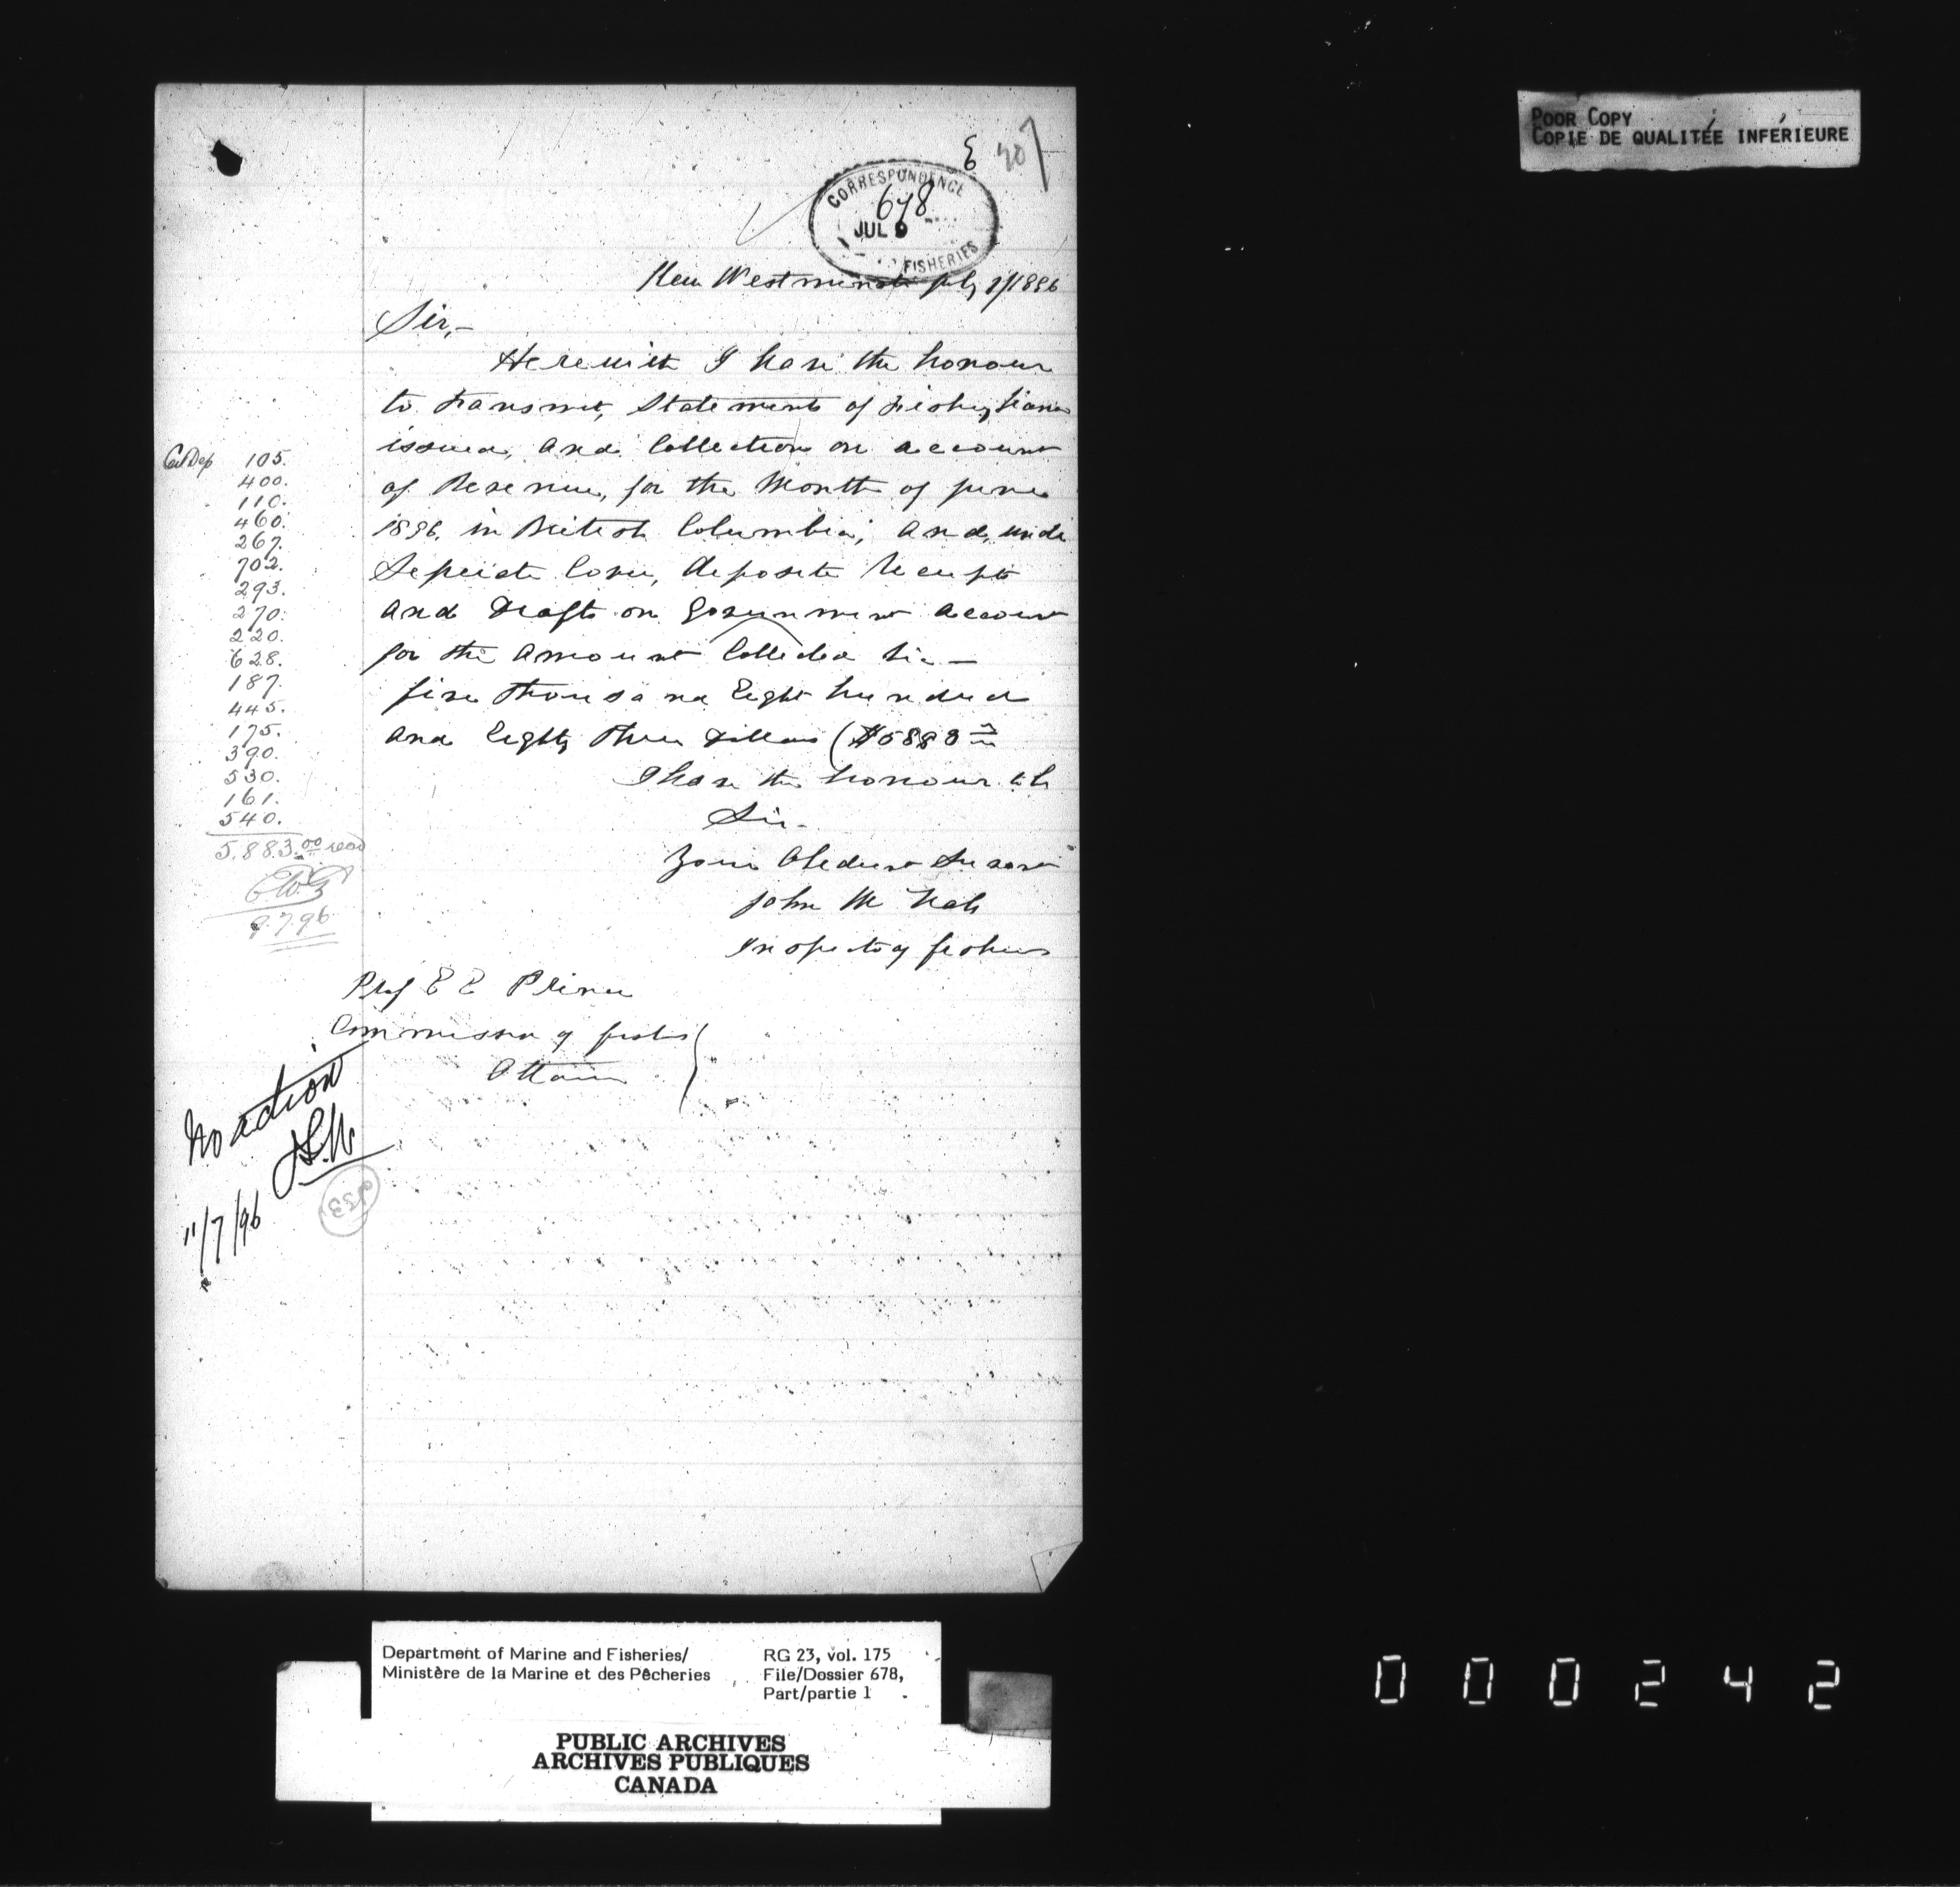 POOR COPY
COPIE DE QUALITÉE INFÉRIEURE
E
CORRESPONDENCE
678
JUL 9
FISHERIES
New Westminster July 2/1896
Sir,-
Herewith I have the honour
to transmit, Statements of Fishery
issued, and Collections on account
of Revenue, for the Month of June
1896, in British Columbia, and, under
Seperate Cover, deposite Receipts
and Drafts on Government account
for the Amount Collected Viz -
five Thousand Eight hundred
and Eighty Three Dollars ($5883
I have the honour to be
Sir -
Your Obedient Servant
John McNab
Inspector of Fisheries
Prof E E Prince
Commissioner of Fisheries
Ottawa
105.
400.
110.
460.
267.
702.
293.
270.
220.
628.
187.
445.
175.
390.
530.
161.
540.
5.883.00
9.7.96
No action
11/7/96
Department of Marine and Fisheries/
Ministère de la Marine et des Pêcheries
RG 23, vol. 175
File/Dossier 678,
Part/partie 1
PUBLIC ARCHIVES
ARCHIVES PUBLIQUES
CANADA
000242